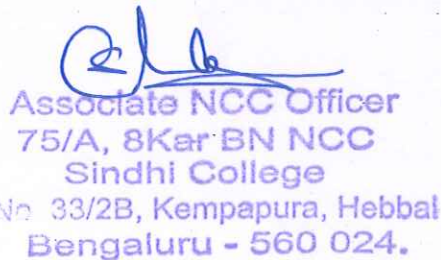 Associate NCC Officer
75/A, 8Kar BN NCC
Sindhi College
No 33/2B, Kempapura, Hebbal
Bengaluru - 560 024.